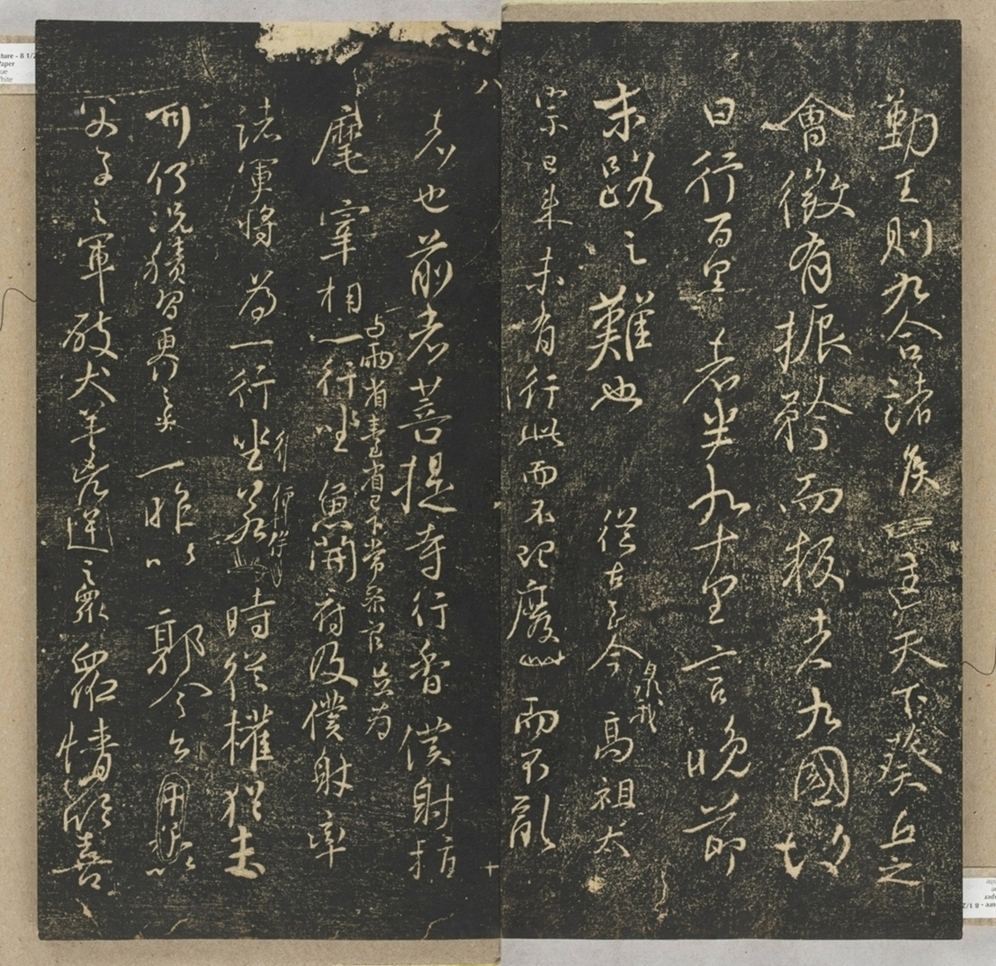 勤王則九合諸侯一匡天下葵丘之
會微有振矜而叛者九國故
曰行百里者半九十里言晚節
末路之難也從古至今曁我高祖太
宗已來未有行此而不理廢此而不亂
者也前者菩提寺行香僕射指
麾宰相與兩省臺省已下常參官並為一行坐魚開府及僕射率
諸軍將為一行坐若一時從權猶未
可何況積習更行之乎一昨以郭令公以
父子之軍破犬羊凶逆之眾眾情欣喜